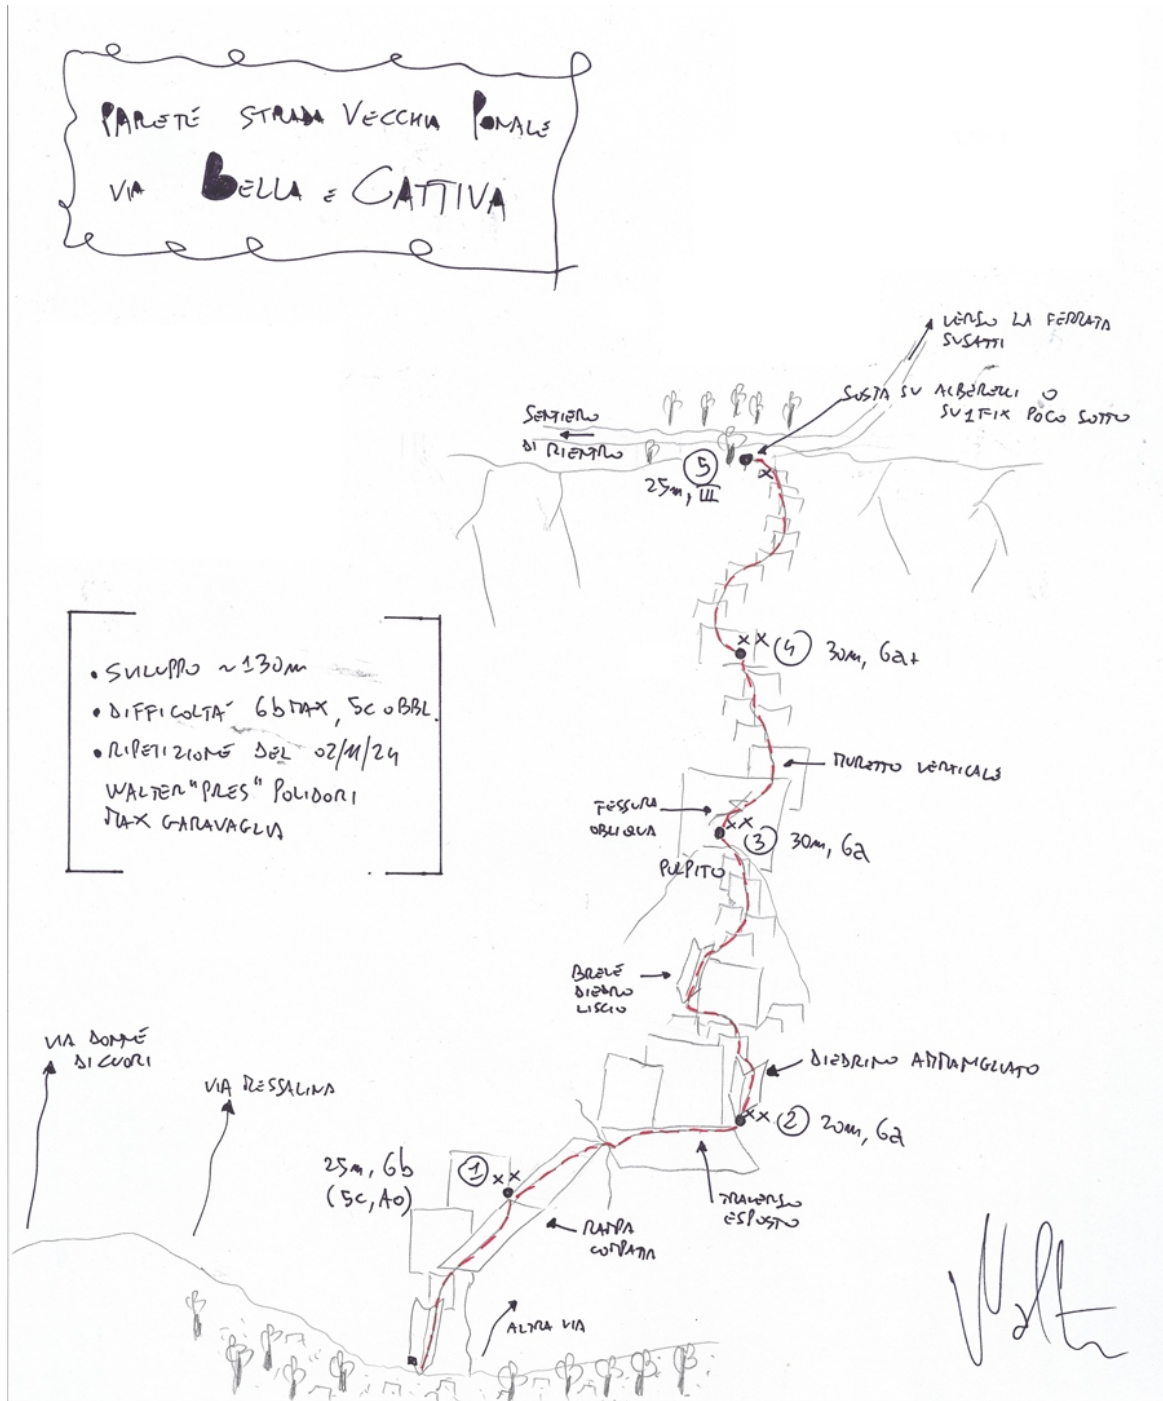 PARETE STRADA VECCHIA PONALE
VIA BELLA E CATTIVA
VERSO LA FERRATA
SUSATTI
SOSTA SU ALBERELLI O
SU 1 FIX POCO SOTTO
SENTIERO
DI RIENTRO
5
25m, III
4 30m, 6a+
• SVILUPPO ~130m
• DIFFICOLTA' 6b MAX, 5c OBBL.
• RIPETIZIONE DEL 02/11/24
WALTER "PRES" POLIDORI
MAX GARAVAGLIA
MURETTO VERTICALE
FESSURA
OBLIQUA
3 30m, 6a
PULPITO
BREVE
DIEDRO
LISCIO
VIA DONNE
DI CUORI
VIA MESSALINA
DIEDRINO AMMANIGLIATO
2 20m, 6a
25m, 6b
(5c, A0)
1
TRAVERSO
ESPOSTO
RAMPA
COMPATTA
ALTRA VIA
Walter